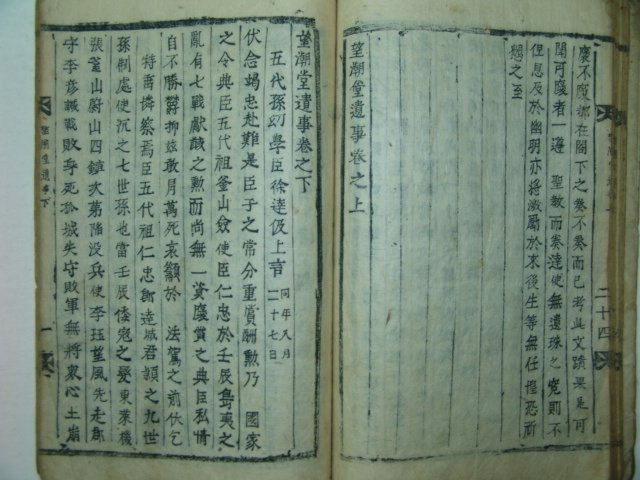 褒不褒都在閣下之奏不奏而已考此文蹟果是可
聞可褒者一遵 聖教而奏達使無遺珠之寃則不
但恩及於幽明亦將激厲於來後生等無任惶恐祈
懇之至
望潮堂遺事卷之上
二十四
望潮堂遺事卷之下
五代孫幼學臣徐達伋上言 同年八月二十七日
伏念竭忠赴難是臣子之常分重賞酬勲乃 國家
之令典臣五代祖釜山僉使臣仁忠於壬辰島夷之
亂有七戰獻馘之勲而尚無一資褒賞之典臣私情
自不勝欝抑玆敢月萬死哀籲於 法駕之前伏乞
特垂憐察焉臣五代祖仁忠卽達城君頴之九世
孫制處使沉之七世孫也當壬辰倭寇之變東萊機
張釜山蔚山四鎮次第陷没兵使李珏望風先走郡
守李彦諴戰敗身死孤城失守敗軍無將衆心土崩
望潮堂遺事下
一